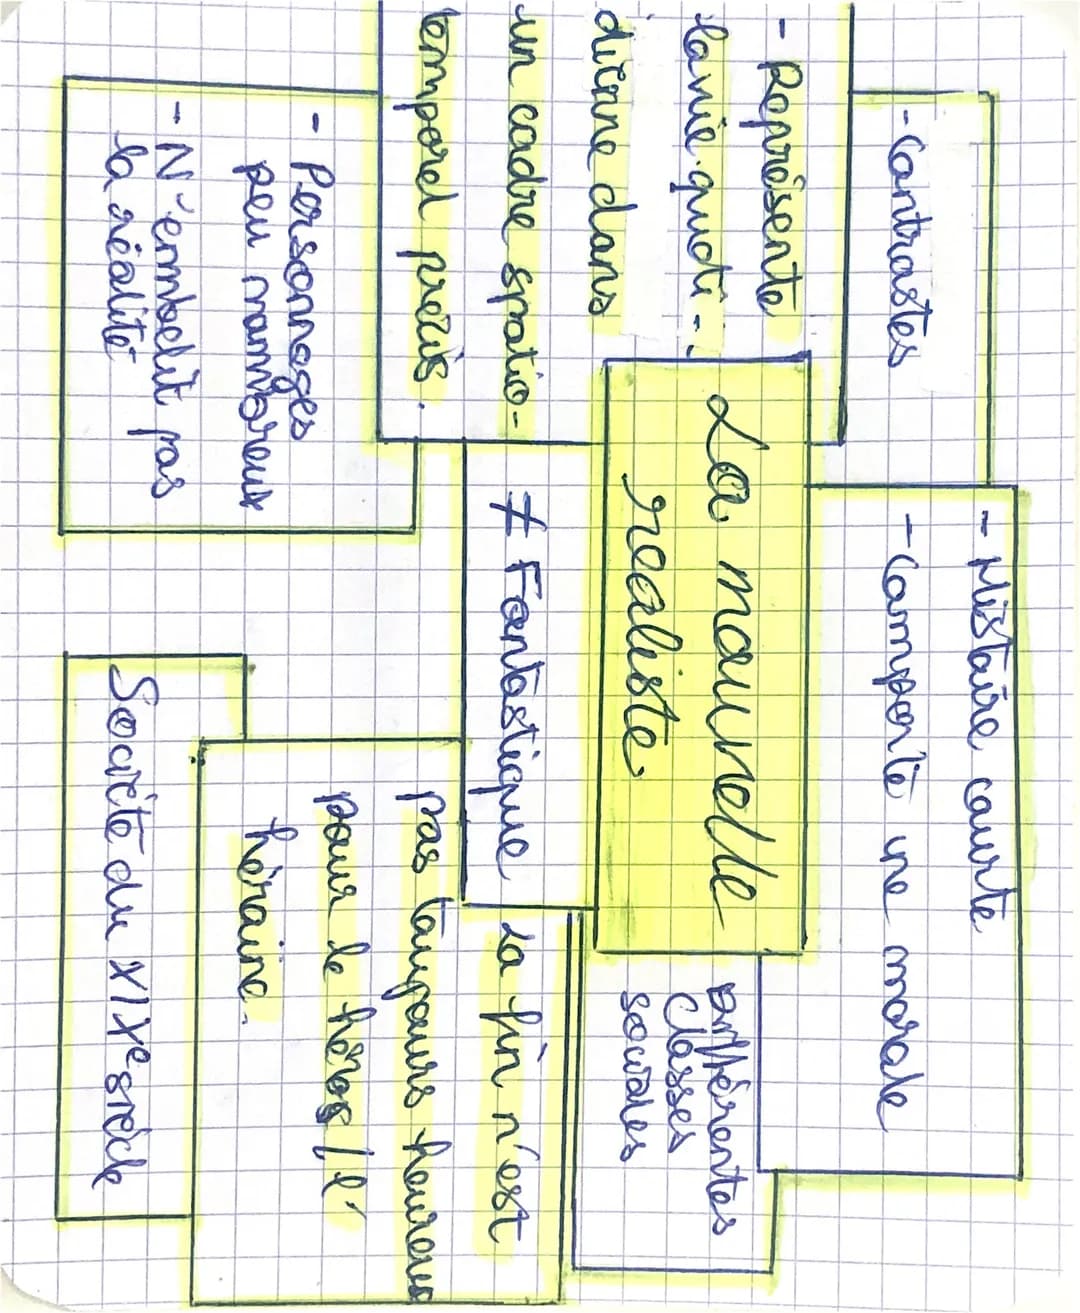 - Contrastes
- Histoire courte
- Comporte une morale
- Représente
la vie quoti-
dienne dans
un cadre spatio-
temporel précis.
La nouvelle
réaliste
différentes
classes
sociales
≠ Fantastique
- Personnages
peu nombreux
- N'embelit pas
la réalité
La fin n'est
pas toujours heureuse
pour le héros / l'
héroïne.
Société du XIXe siècle